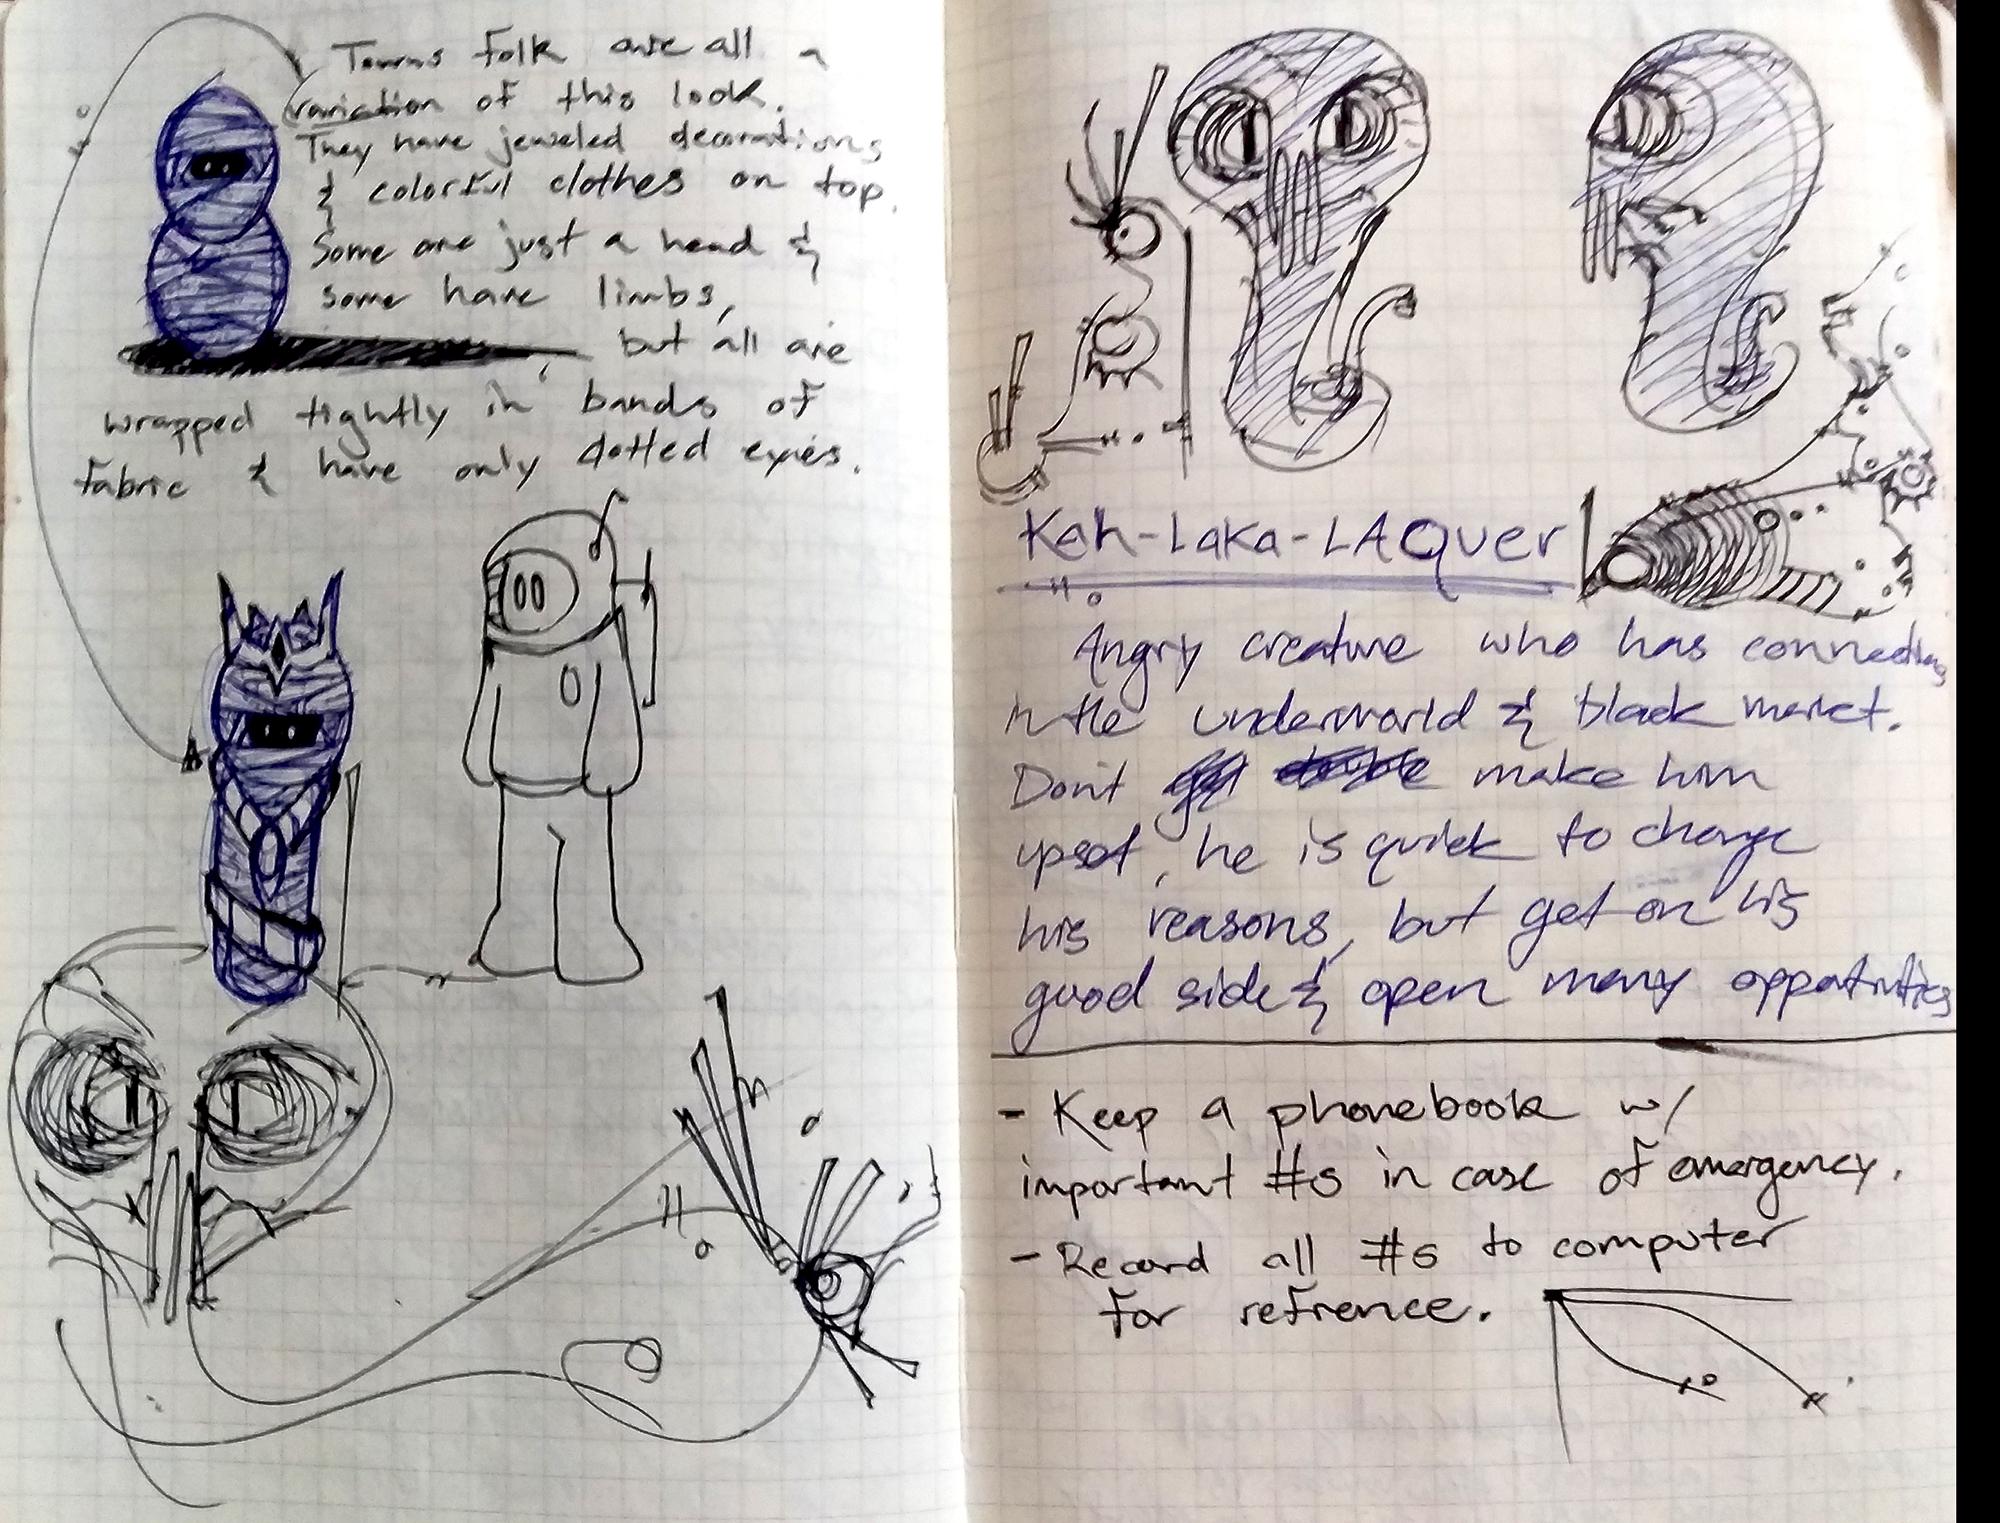 Towns folk are all a
variation of this look.
They have jeweled decorations
& colorful clothes on top.
Some are just a head &
some have limbs,
but all are
wrapped tightly in bands of
fabric & have only dotted eyes.
Kah-Laka-LAQuer
Angry creature who has connections
in the underworld & black market.
Don't make him
upset, he is quick to change
his reasons, but get on his
good side & open many
- Keep a phonebook w/
important #s in case of emergency.
- Record all #s to computer
for refrence.